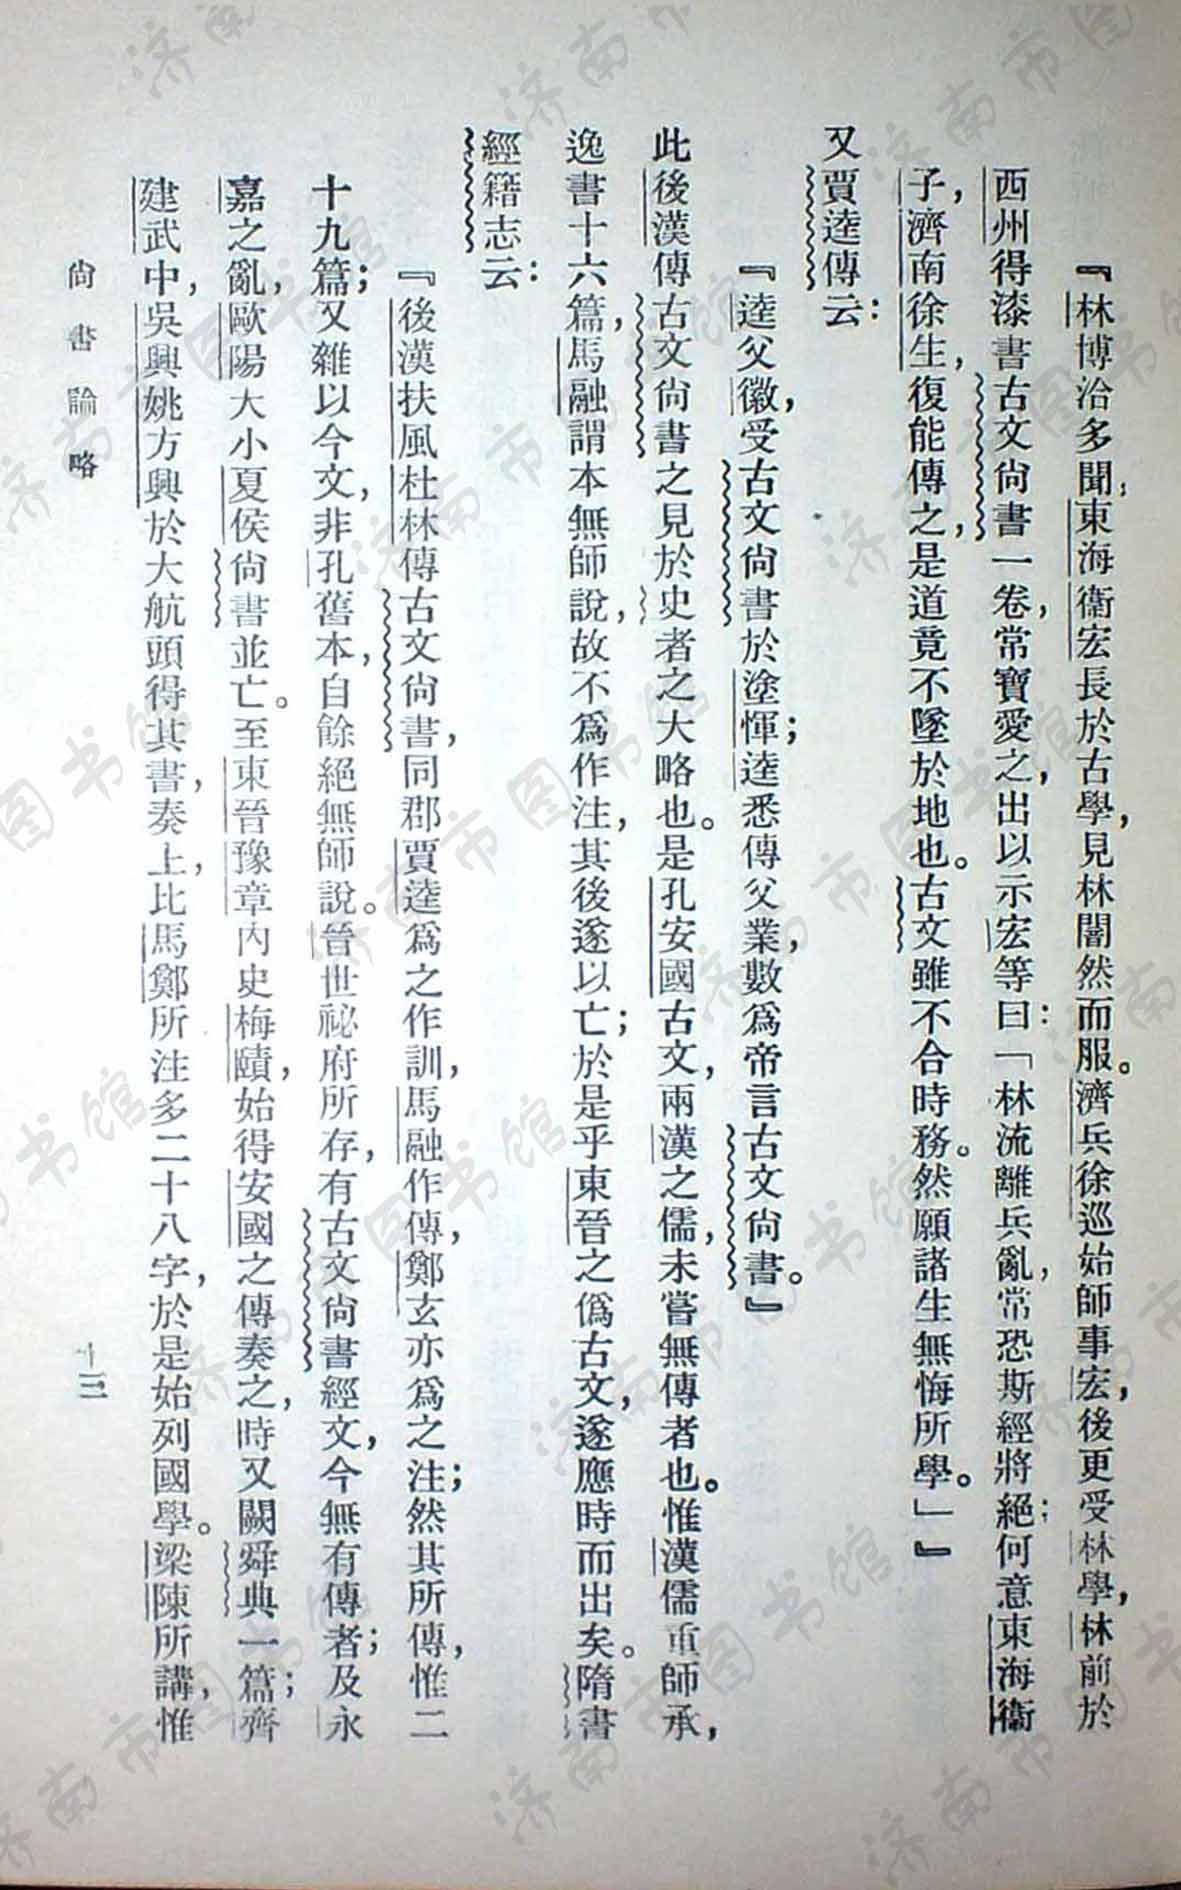 『林博洽多聞，東海衞宏長於古學，見林闇然而服。濟兵徐巡始師事宏，後更受林學，林前於
西州得漆書古文尚書一卷，常寶愛之，出以示宏等曰：「林流離兵亂，常恐斯經將絕；何意東海衞
子，濟南徐生，復能傳之，是道竟不墜於地也。古文雖不合時務。然願諸生無悔所學。」』
又賈逵傳云：
『逵父徽，受古文尚書於塗惲；逵悉傳父業，數爲帝言古文尚書。』
此後漢傳古文尚書之見於史者之大略也。是孔安國古文，兩漢之儒，未嘗無傳者也。惟漢儒重師承，
逸書十六篇，馬融謂本無師說，故不爲作注，其後遂以亡；於是乎東晉之僞古文，遂應時而出矣。隋書
經籍志云：
『後漢扶風杜林傳古文尚書，同郡賈逵爲之作訓，馬融作傳，鄭玄亦爲之注；然其所傳，惟二
十九篇；又雜以今文，非孔舊本，自餘絕無師說。晉世祕府所存，有古文尚書經文，今無有傳者；及永
嘉之亂，歐陽大小夏侯尚書並亡。至東晉豫章內史梅賾，始得安國之傳奏之，時又闕舜典一篇；齊
建武中，吳興姚方興於大航頭得其書，奏上，比馬鄭所注多二十八字，於是始列國學。梁陳所講，惟
尚書論略
十三
济南市图书馆